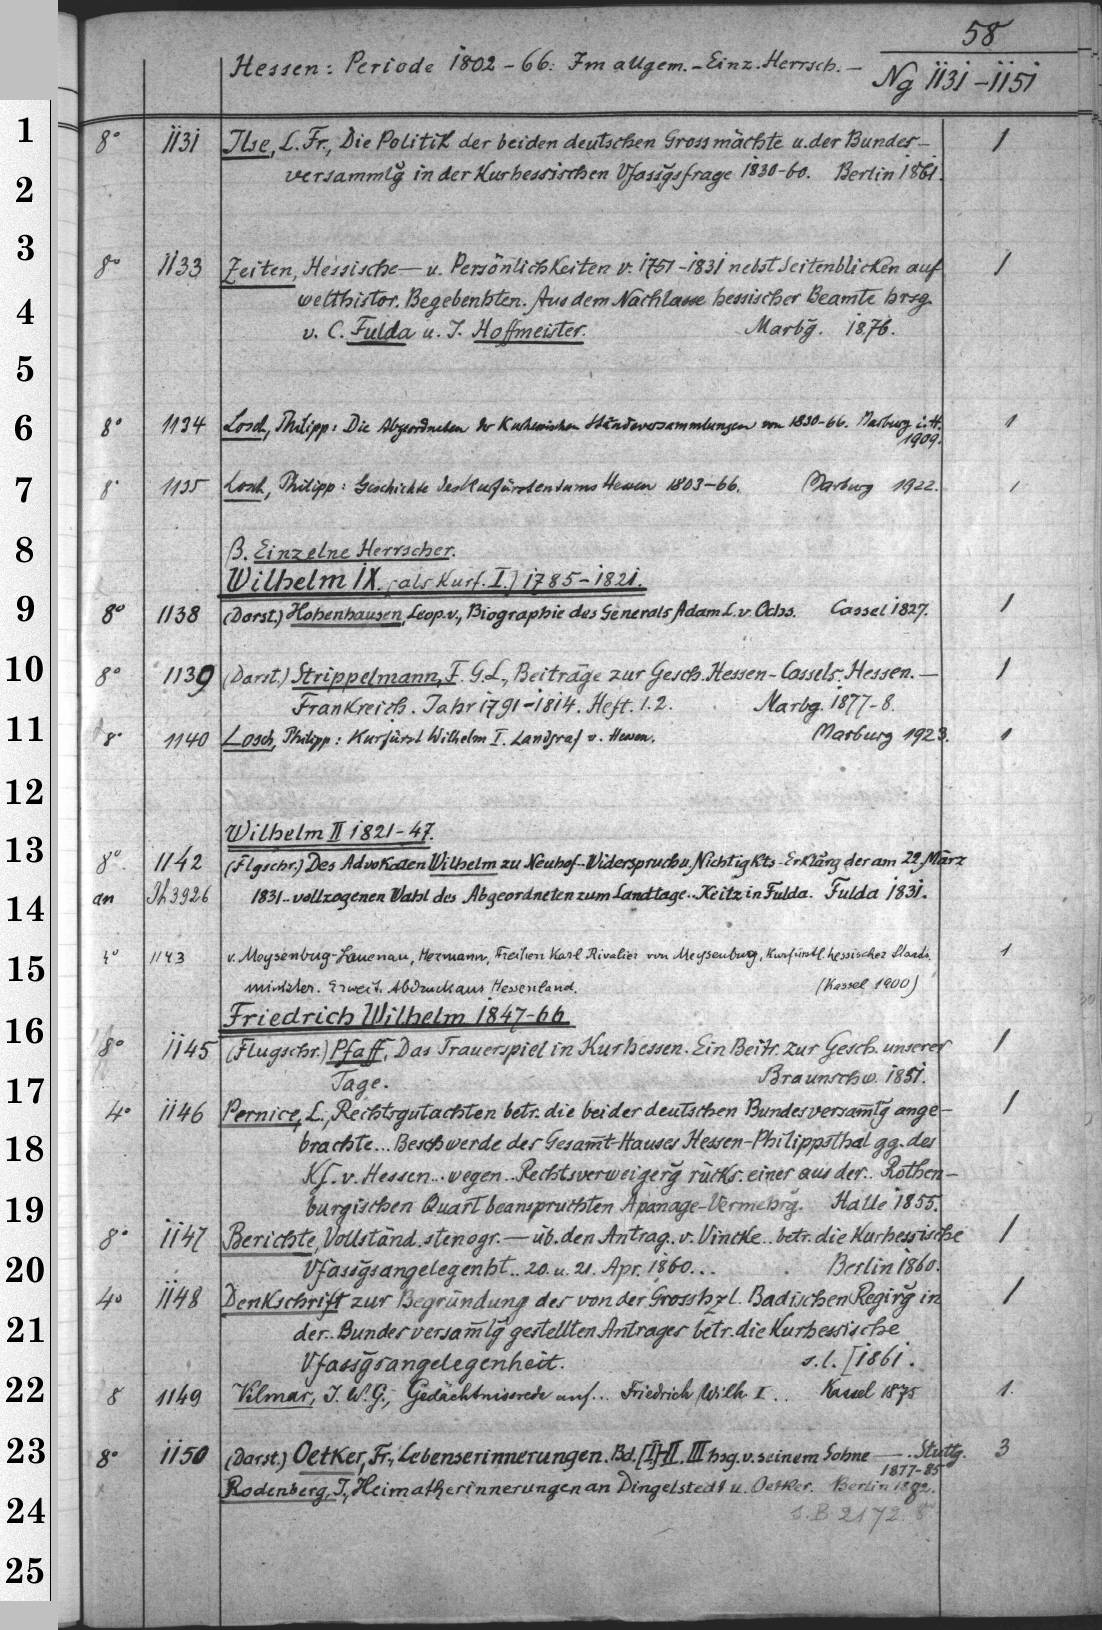 58
Hessen: Periode 1802-66: Im allgem. - Einz. Herrsch. -
Ng 1131-1151
1
8° 1131 Ilse, L. Fr., Die Politik der beiden deutschen Grossmächte u. der Bundes- 1
2
versammlg in der Kurhessischen Vfassgsfrage 1830-60. Berlin 1861.
3
8° 1133 Zeiten, Hessische — u. Persönlichkeiten v. 1751-1831 nebst Seitenblicken auf 1
4
welthistor. Begebenhten. Aus dem Nachlasse hessischer Beamte hrsg.
v. C. Fulda u. J. Hoffmeister. Marbg. 1876.
5
6
8° 1134 Losch, Philipp: Die Abgeordneten der Kurhessischen Ständeversammlungen von 1830-66. Marburg i. H. 1
1909.
7
8° 1135 Losch, Philipp: Geschichte des Kurfürstentums Hessen 1803-66. Marburg 1922. 1
8
B. Einzelne Herrscher.
Wilhelm IX. (als Kurf. I.) 1785-1821.
9
8° 1138 (Darst.) Hohenhausen, Leop. v., Biographie des Generals Adam L. v. Ochs. Cassel 1827. 1
10
8° 1139 (Darst.) Strippelmann, F. G. L., Beiträge zur Gesch. Hessen-Cassels. Hessen. — 1
Frankreich. Jahr 1791-1814. Heft. 1. 2. Marbg. 1877-8.
11
8° 1140 Losch, Philipp: Kurfürst Wilhelm I. Landgraf v. Hessen. Marburg 1923. 1
12
Wilhelm II 1821-47.
13
8° 1142 (Flgschr.) Des Advokaten Wilhelm zu Neuhof.. Widerspruch u. Nichtigkts-Erklärg der am 22. März
14
an Ph 3926 1831.. vollzogenen Wahl des Abgeordneten zum Landtage.. Keitz in Fulda. Fulda 1831.
15
4° 1143 v. Meysenbug-Lauenau, Hermann, Freiherr Karl Rivalier von Meysenbug, Kurfürstl. hessischer Staats- 1
minister. Erweit. Abdruck aus Hessenland. (Kassel 1900)
16
Friedrich Wilhelm 1847-66
8° 1145 (Flugschr.) Pfaff, Das Trauerspiel in Kurhessen. Ein Beitr. zur Gesch. unserer 1
17
Tage. Braunschw. 1851.
4° 1146 Pernice, L., Rechtsgutachten betr. die bei der deutschen Bundesversam̅lg ange- 1
18
brachte... Beschwerde des Gesam̅t-Hauses Hessen-Philippsthal gg. des
Kf. v. Hessen... wegen.. Rechtsverweigerg rücks. einer aus der.. Rothen-
19
burgischen Quart beanspruchten Apanage-Vermehrg. Halle 1855.
8° 1147 Berichte, Vollständ. stenogr. — üb. den Antrag. v. Vincke.. betr. die Kurhessische 1
20
Vfassgsangelegenht.. 20. u. 21. Apr. 1860... Berlin 1860.
4° 1148 Denkschrift zur Begründung des von der Grosshzl. Badischen Regirg in 1
21
der.. Bundesversam̅lg gestellten Antrages betr. die Kurhessische
Vfassgsangelegenheit. s. l. [1861.
22
8 1149 Vilmar, J. W. G., Gedächtnisrede auf... Friedrich Wilh. I... Kassel 1875 1.
23
8° 1150 (Darst.) Oetker, Fr., Lebenserinnerungen. Bd. [I]-II. III hsg. v. seinem Sohne —. Stuttg. 3
1877-85
Rodenberg, J., Heimatherinnerungen an Dingelstedt u. Oetker. Berlin 1882.
24
s. B 2172 8°
25